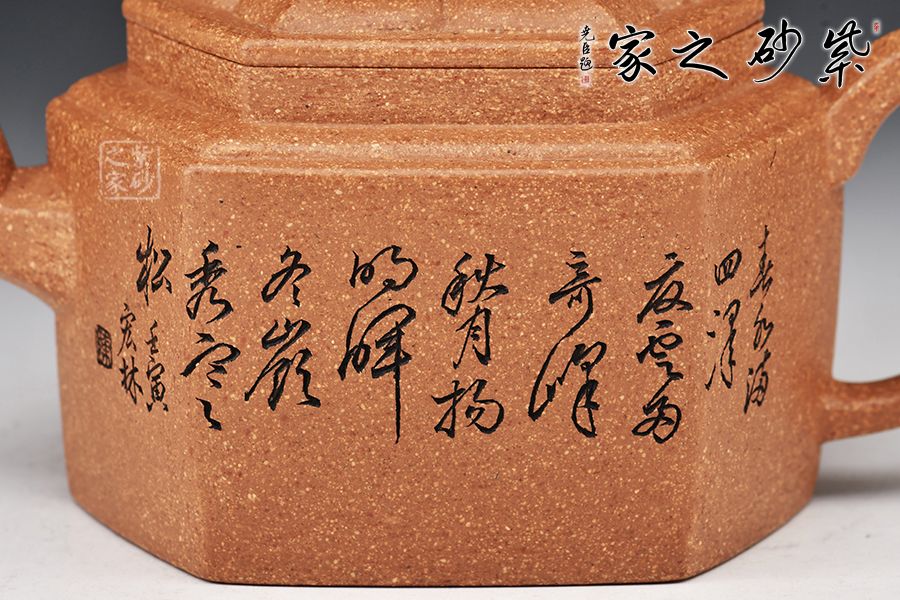 紫砂之家
尧臣题
紫砂之家
春水满
四澤
夏雲多
奇峰
秋月揚
明暉
冬嶺
秀寒
松
壬寅
宏林